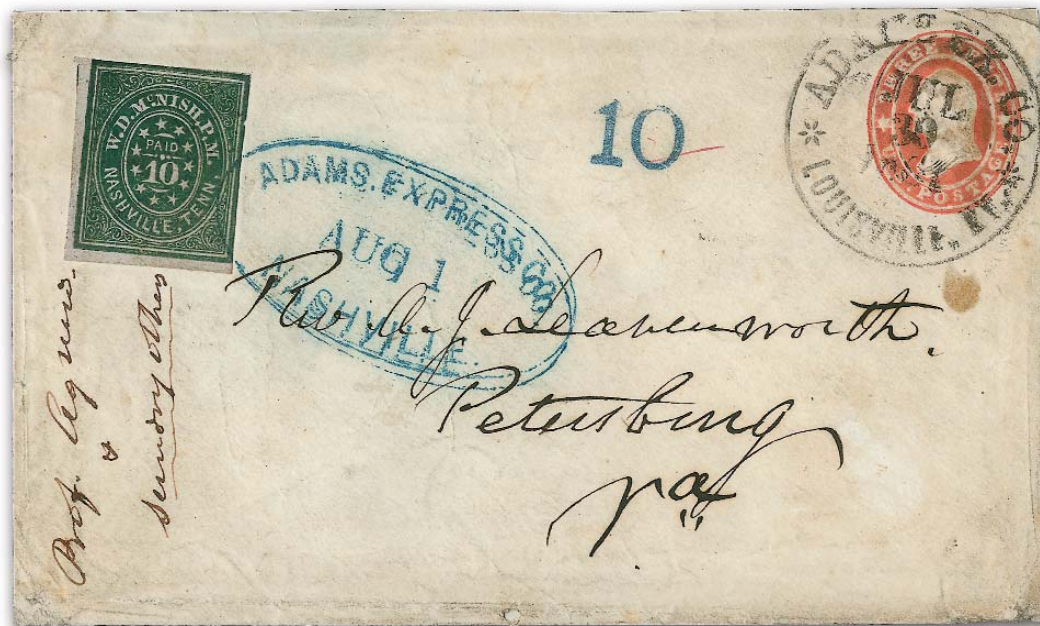 W.D. McNISH, P.M.
PAID
10
NASHVILLE, TENN.
ADAMS. EXPRESS CO.
AUG 1
NASHVILLE.
10
ADAMS EX. CO.
JUL
30
LOUISVILLE, KY.
THREE CENTS
U.S. POSTAGE
Rev. A. J. Leavenworth.
Petersburg
Va
Prof. Agnew.
&
sundry others